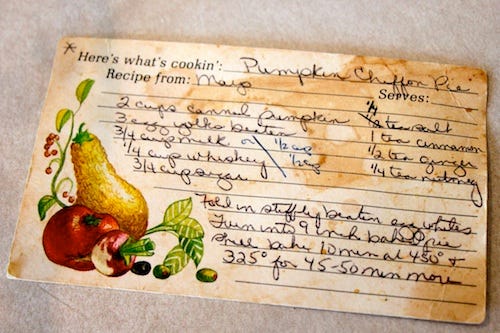 * Here's what's cookin': Pumpkin Chiffon Pie
Recipe from: Serves:
2 cups canned pumpkin 1/4 tea salt
3 egg yolks beaten 1 tea cinnamon
3/4 cup milk or 1/2 cup 1/2 tea ginger
1/4 cup whiskey 1/2 cup 1/4 tea nutmeg
3/4 cup sugar
Fold in stiffly beaten egg whites
Turn into 9 inch pie
bake 10 min at 450° +
325° for 45-50 min more